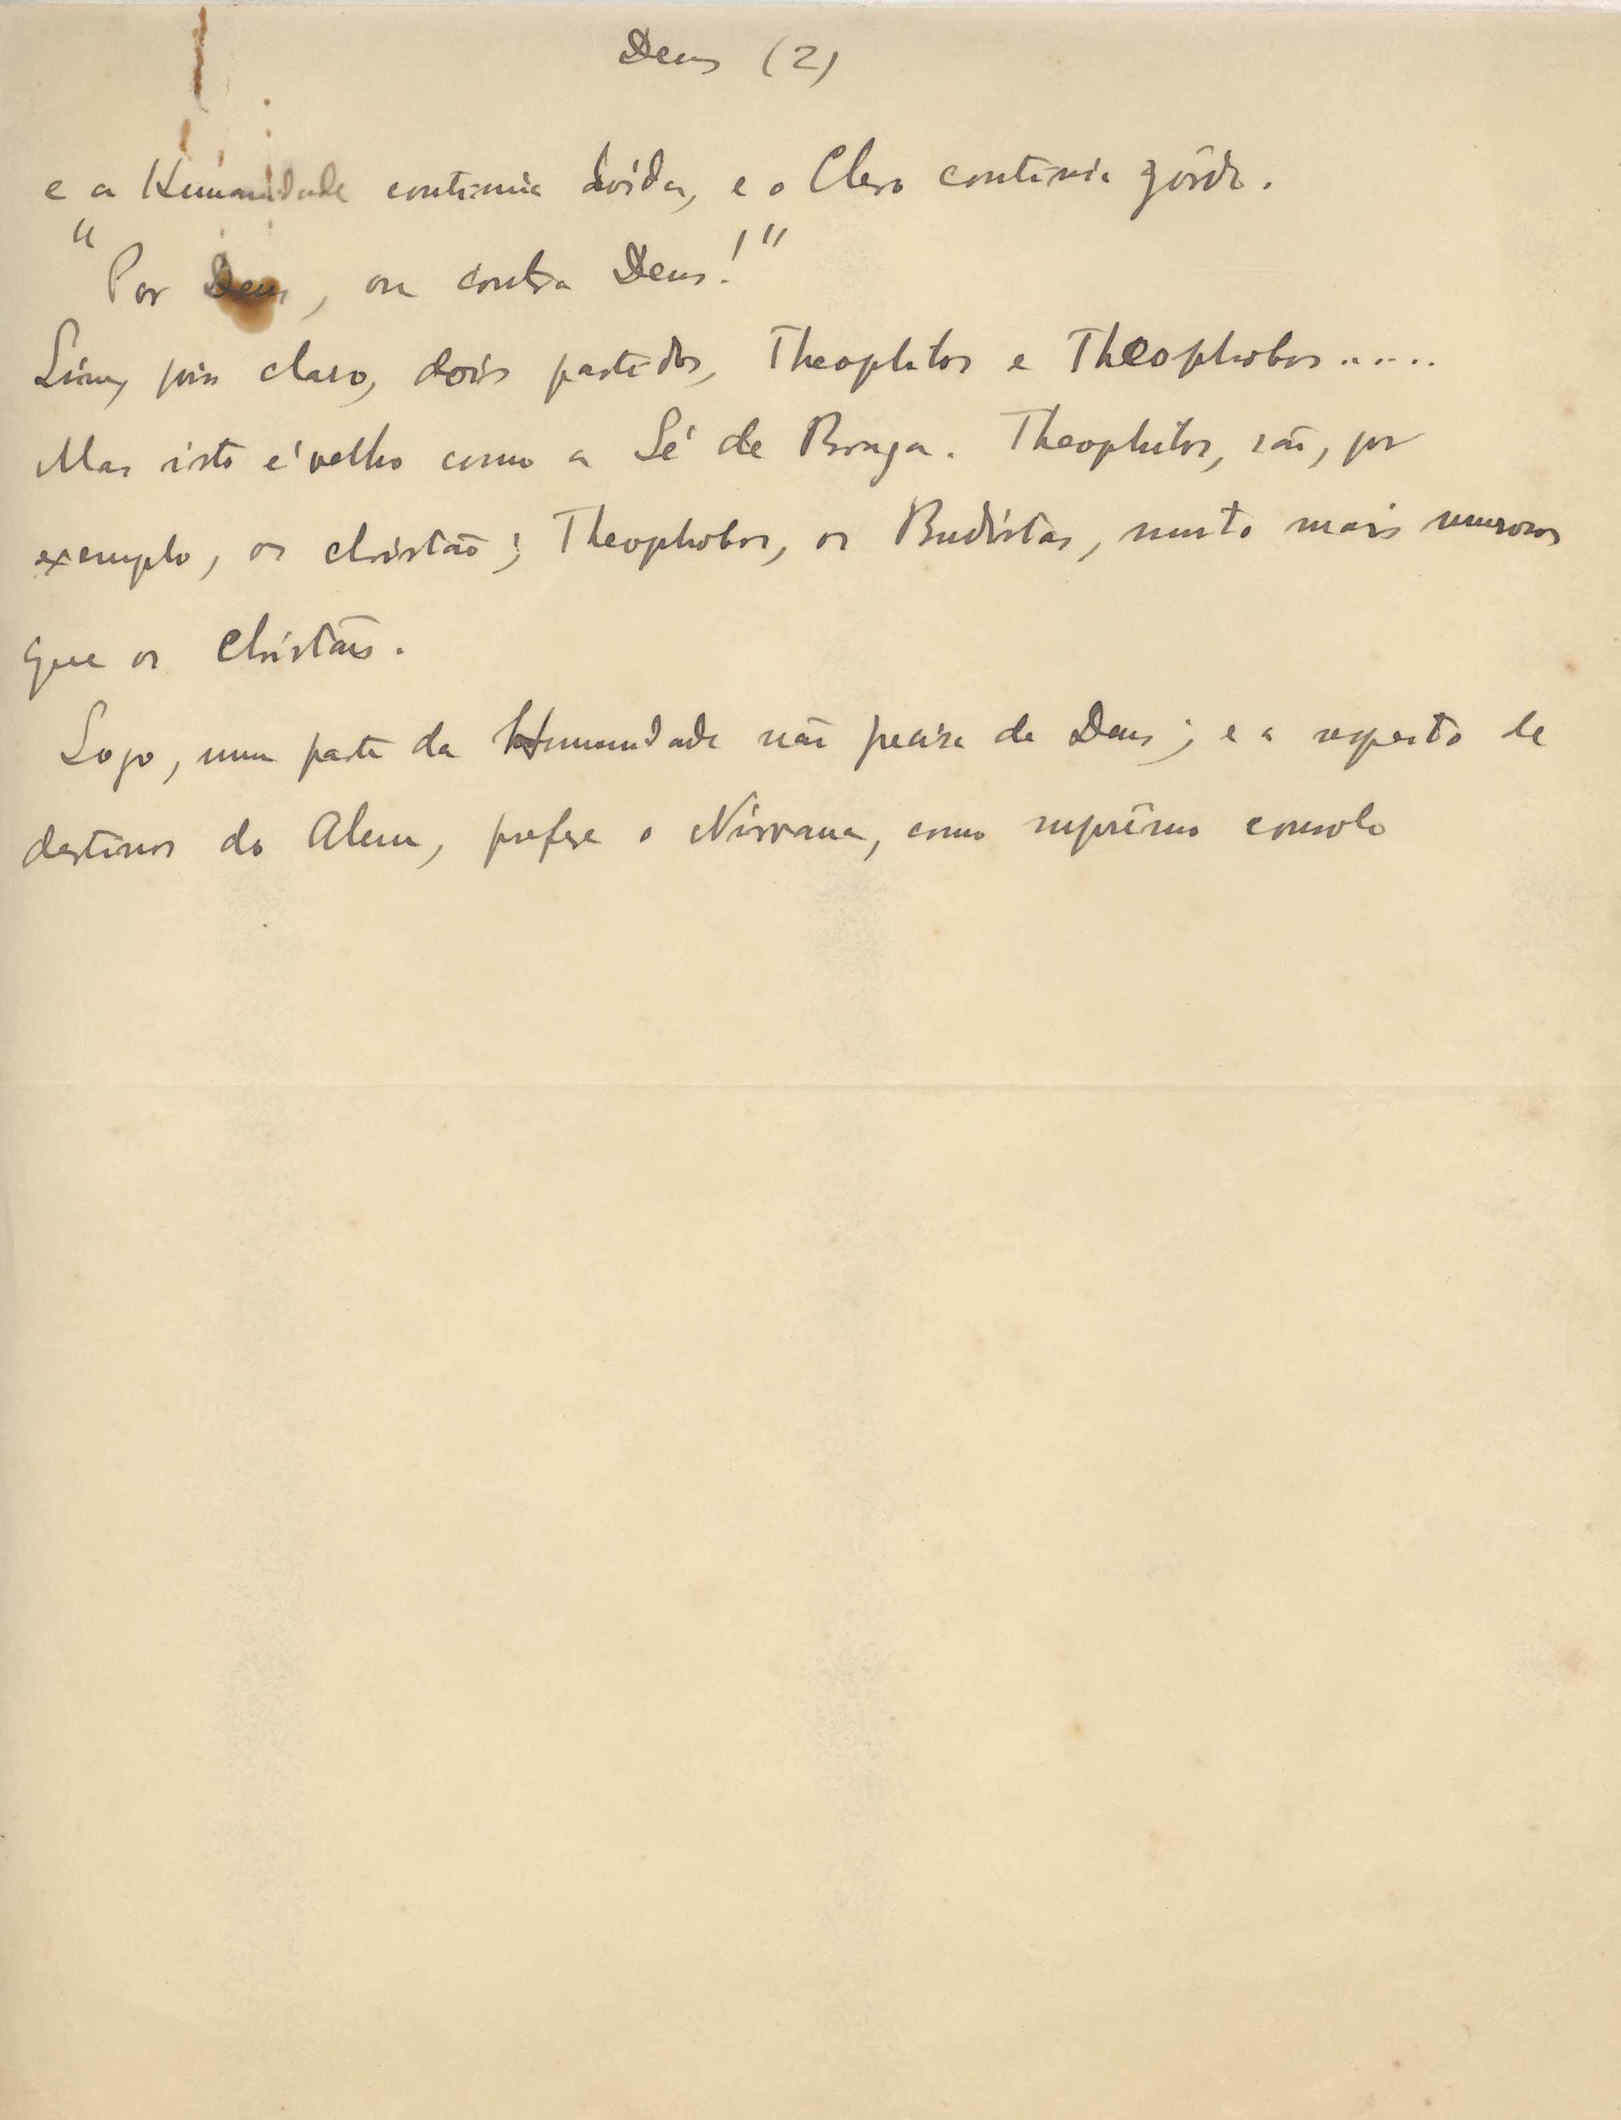 Deus (2)
e a Humanidade continúa doida, e o Clero continúa górdo.
"Por Deus, ou contra Deus!"
Sim, pois claro, dois partidos, Theophilos e Theophobos.....
Mas isto é velho como a Sé de Braga. Theophilos, são, por
exemplo, os christão; Theophobos, os Budistas, muito mais numerosos
que os Christãos.
Logo, uma parte da Humanidade não precisa de Deus; e a respeito de
destinos do Alem, prefere o Nirvana, como suprêmo consolo